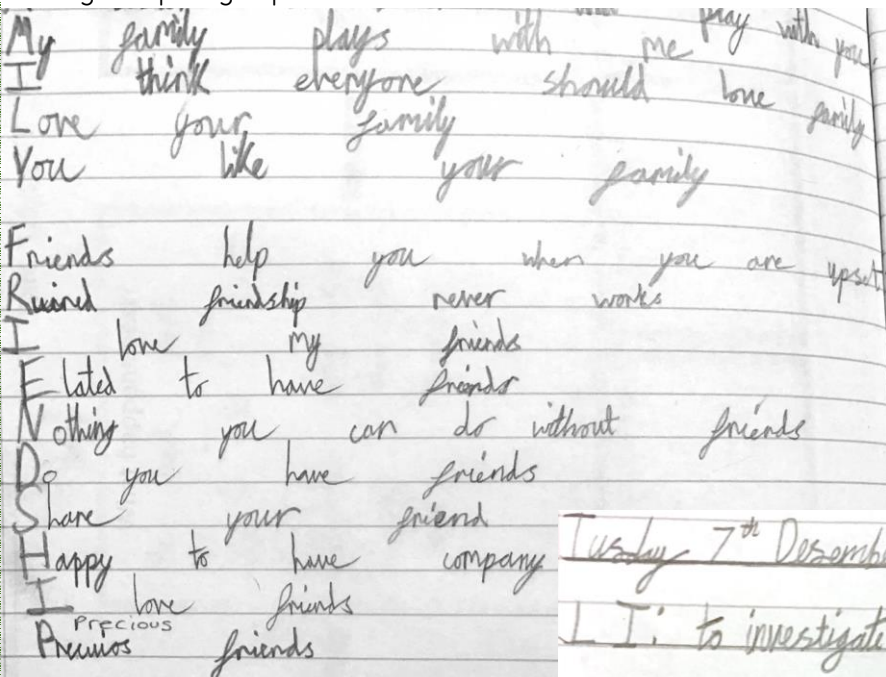 play with you.
My family plays with me
I think everyone should love family
Love your family
You like your family
Friends help you when you are upset.
Ruined friendship never works
I love my friends
Elated to have friends
Nothing you can do without friends
Do you have friends
Share your friend
Happy to have company
I love friends
Precious
friends
Tusday 7th Desemb
L I: to investigate